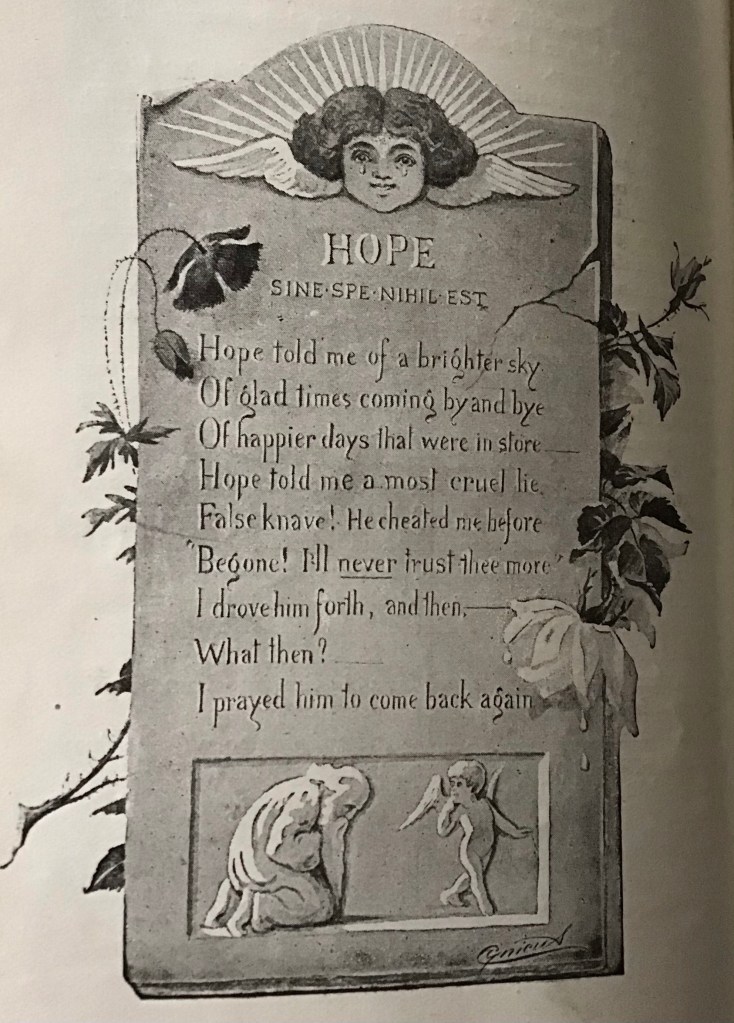 HOPE
SINE·SPE·NIHIL·EST
Hope told me of a brighter sky
Of glad times coming by and bye
Of happier days that were in store
Hope told me a most cruel lie.
False knave! He cheated me before
"Begone! I'll never trust thee more"
I drove him forth, and then,—
What then?
I prayed him to come back again
Cynicus